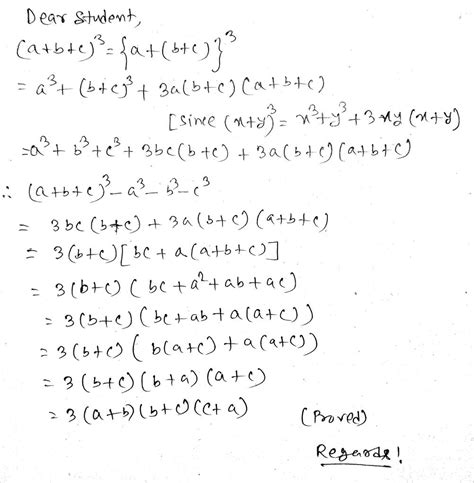 Dear Student,
(a+b+c)³ = {a+(b+c)}³
= a³ + (b+c)³ + 3a(b+c)(a+b+c)
[since (x+y)³ = x³+y³+3xy(x+y)
= a³ + b³ + c³ + 3bc(b+c) + 3a(b+c)(a+b+c)
∴ (a+b+c)³ - a³ - b³ - c³
= 3bc(b+c) + 3a(b+c)(a+b+c)
= 3(b+c)[bc + a(a+b+c)]
= 3(b+c)(bc + a² + ab + ac)
= 3(b+c)(bc + ab + a(a+c))
= 3(b+c)(b(a+c) + a(a+c))
= 3(b+c)(b+a)(a+c)
= 3(a+b)(b+c)(c+a)
(Proved)
Regards!